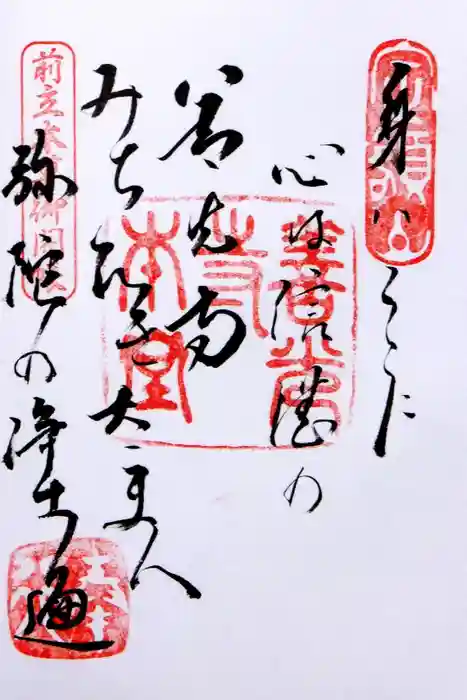 身ハここに
心は信濃の
善光寺
みちびき太まへ
弥陀の浄土遍
前立本尊御開帳
善光寺本堂